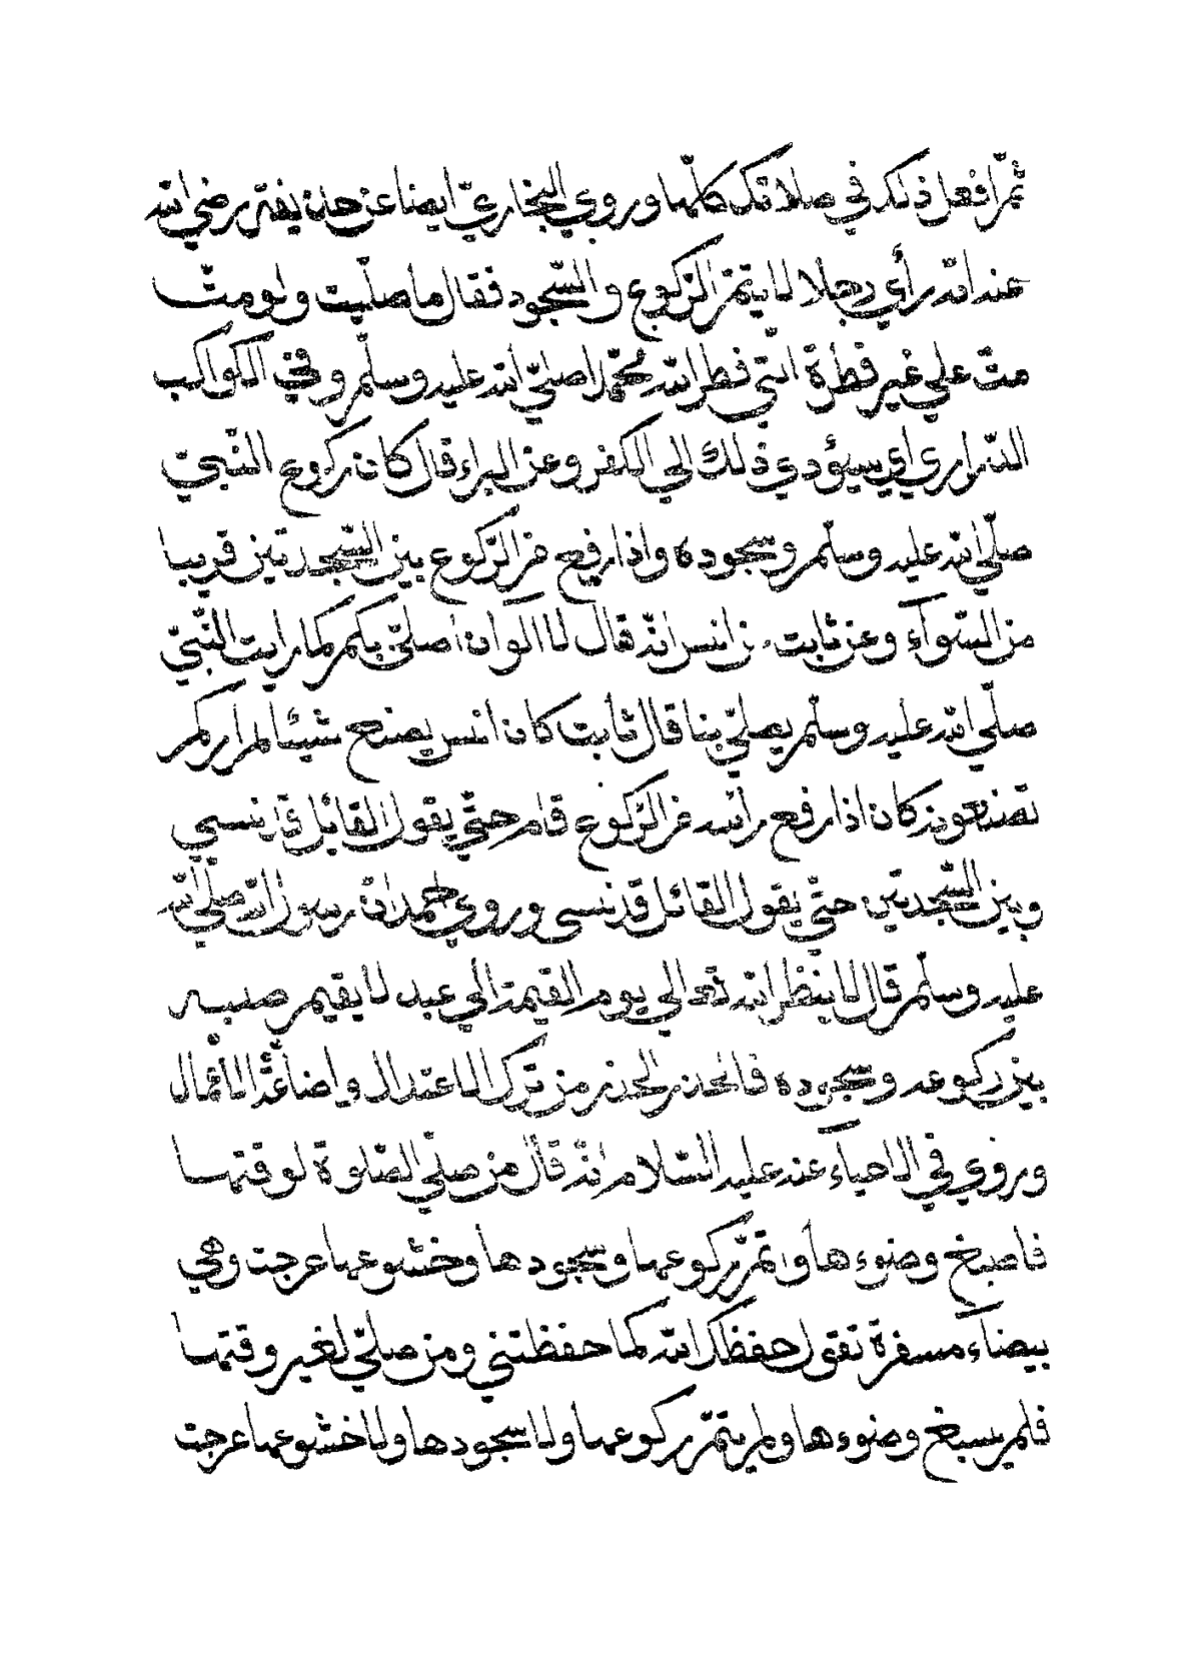 ثمّ افعل ذلك في صلاتك كلّها وروي البخاريّ ايضا عن حذيفة رضي الله
عنه انّه رأي رجلا لا يتمّ الرّكوع والسّجود فقال ما صلّيت ولو متّ
متّ علي غير فطرة الّتي فطر الله محمّدا صلّي الله عليه وسلّم وفي الكواكب
الدّراري اي سيؤدي ذلك الي الكفر وعن البراء قال كان ركوع النّبيّ
صلّي الله عليه وسلّم وسجوده واذا رفع من الرّكوع بين السّجدتين قريبا
من السّوآء وعن ثابت عن انس انّه قال لا الوان اصلّي بكم كما رايت النّبيّ
صلّي الله عليه وسلّم يصلّي بنا قال ثابت كان انس يصنع شيئا لم اركم
تصنعونه كان اذا رفع رأسه من الرّكوع قام حتّي يقول القائل قد نسي
وبين السّجدتين حتّي يقول القائل قد نسي وروي احمد انّ رسول الله صلّي الله
عليه وسلّم قال لا ينظر الله تعالي يوم القيمة الي عبد لا يقيم صلبه
بين ركوعه وسجوده فالحذر الحذر من ترك الاعتدال واضاعة الأعمال
وروي في الاحياء عنه عليه السّلام انّه قال من صلّي الصّلوة لوقتها
فاصبغ وضوءها واتمّ ركوعها وسجودها وخشوعها عرجت وهي
بيضآء مسفرة تقول حفظك الله كما حفظتني ومن صلّي لغير وقتها
فلم يسبغ وضوءها ولم يتمّ ركوعها ولا سجودها ولا خشوعها عرجت